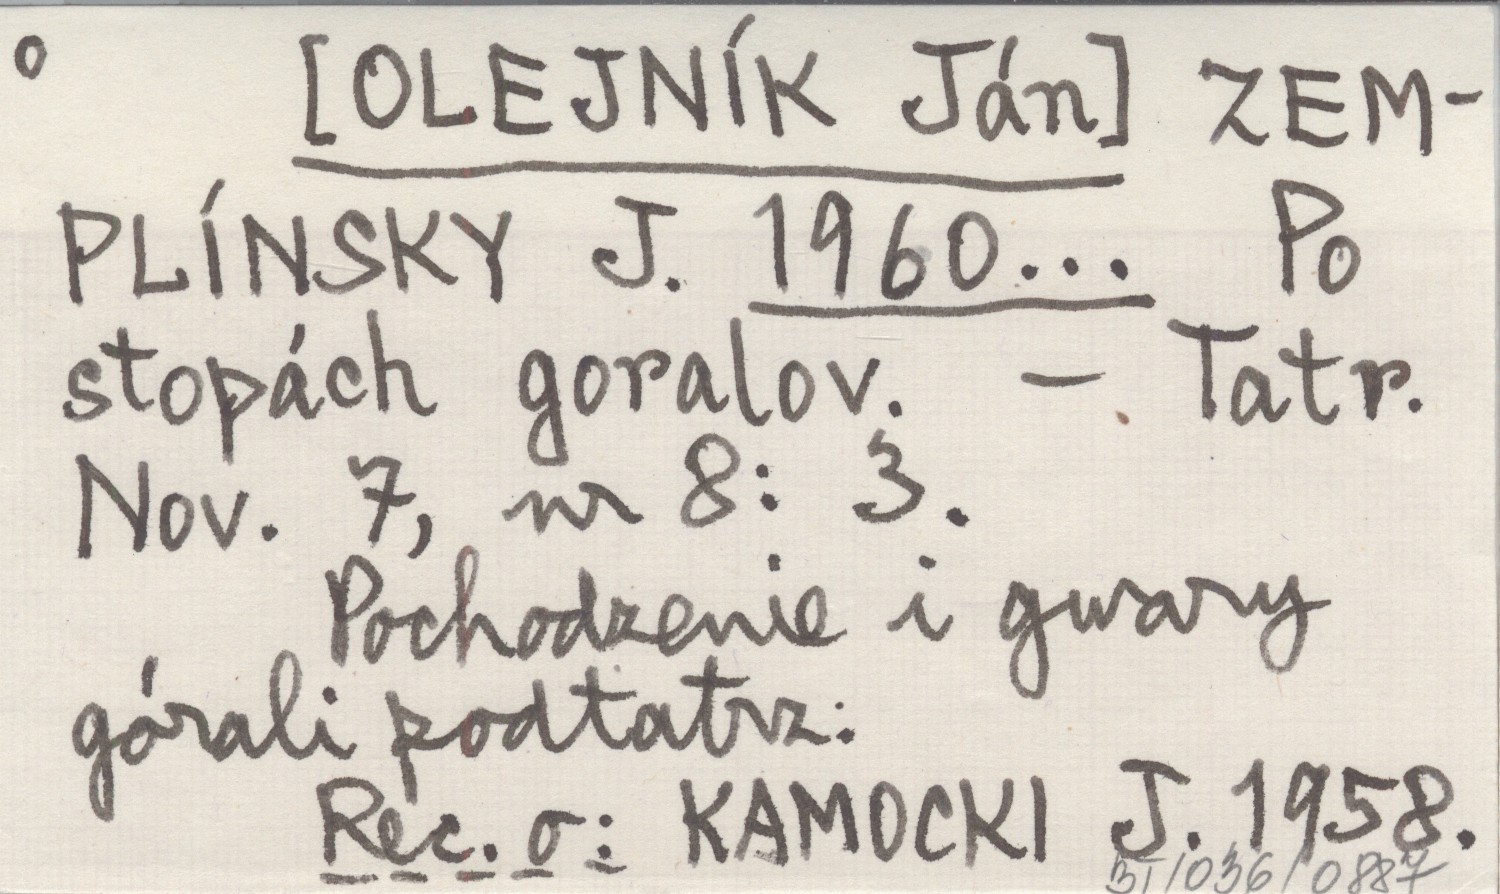 o [OLEJNÍK Ján] ZEM-
PLÍNSKY J. 1960... Po
stopách goralov. – Tatr.
Nov. 7, nr 8: 3.
Pochodzenie i gwary
górali podtatrz:
Rec. o: KAMOCKI J. 1958.
BI/036/0887